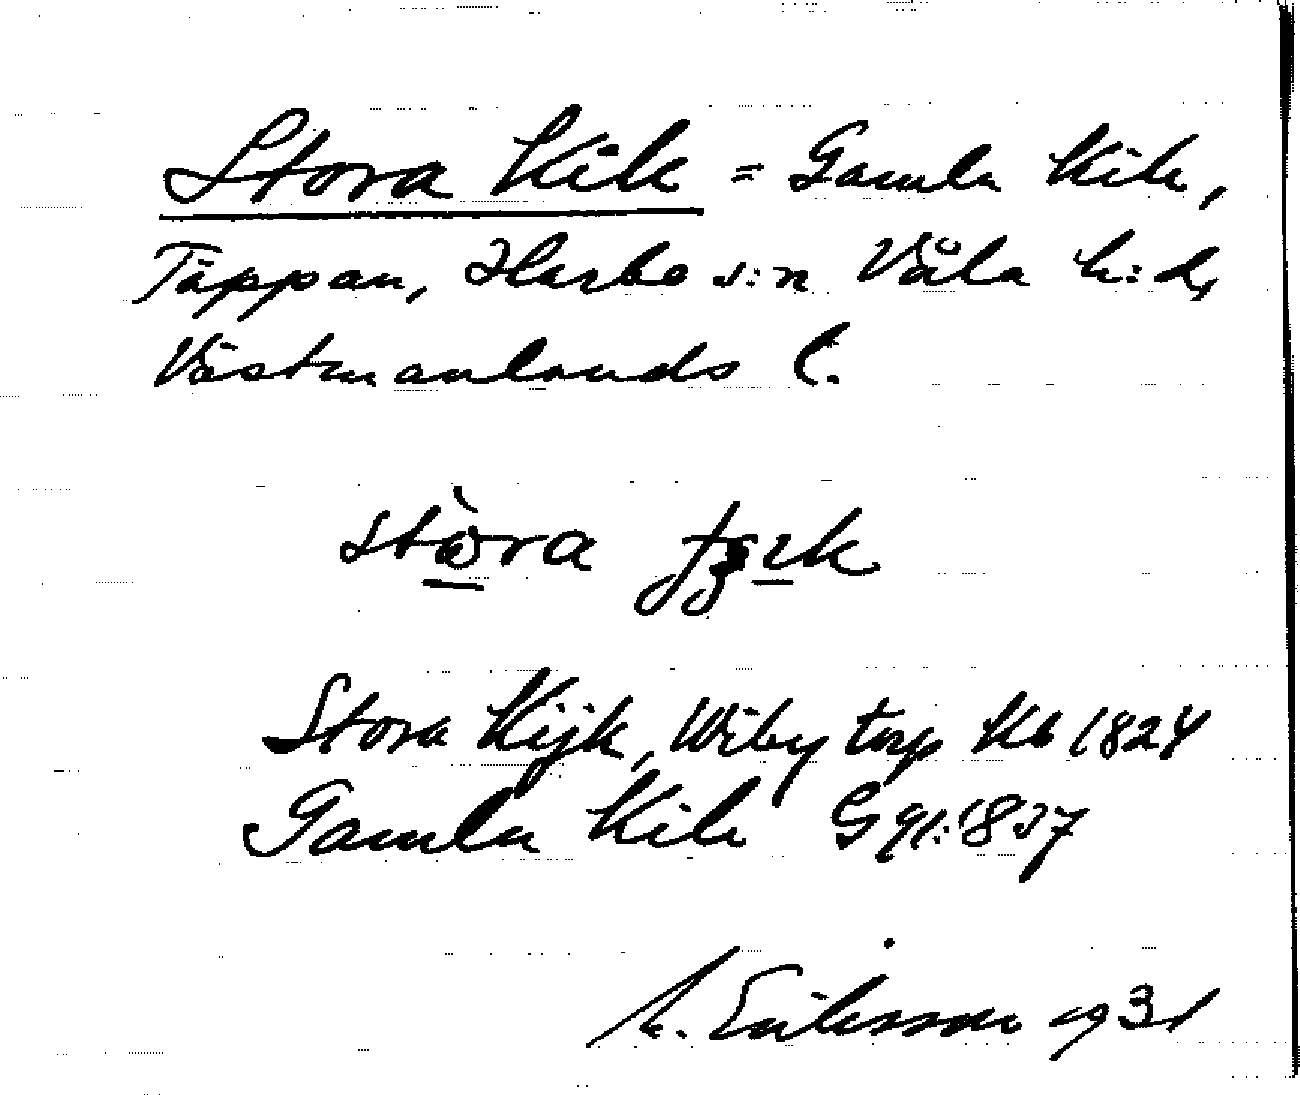 Stora Kik = Gamla Kik,
Täppan, Harbo s:n Våla h:d,
Västmanlands l.
Stora Kijk, Wiby torp Kb 1824
Gamla Kik G 91: 1857
M. Eriksson 1931